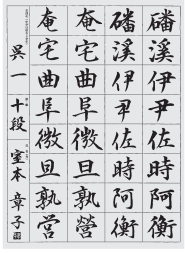 磻溪伊尹佐時阿衡
磻溪伊尹佐時阿衡
奄宅曲阜微旦孰營
奄宅曲阜微旦孰営
呉一 十段 室本章子